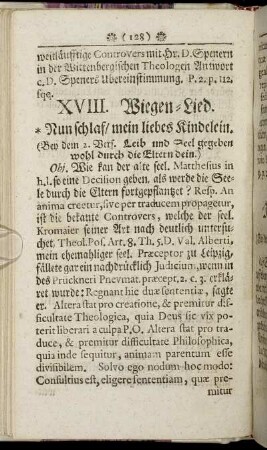 (128)
weitläufftige Controvers mit Hr. D. Spenern
in der Wittenbergischen Theologen Antwort
c. D. Speners Übereinstimmung. P. 2. p. 112.
sqq.
XVIII. Wiegen-Lied.
* Nun schlaf/ mein liebes Kindelein.
(Bey dem 2. Vers. Leib und Seel gegeben
wohl durch die Eltern dein.)
Obj. Wie kan der alte seel. Matthesius in
h. l. so eine Decision geben, als werde die See-
le durch die Eltern fortgepflantzet? Resp. An
anima creetur, sive per traducem propagetur,
ist die bekante Controvers, welche der seel.
Kromaier seiner Art nach deutlich untersu-
chet. Theol. Pos. Art. 8. Th. 5. D. Val. Alberti,
mein ehemahliger seel. Præceptor zu Leipzig,
fällete gar ein nachdrücklich Judicium, wenn in
des Prückneri Pnevmat. præcept. 2. c. 3. erklä-
ret wurde: Regnant hic duæ sententiæ, sagte
er. Altera stat pro creatione, & premitur dif-
ficultate Theologica, quia Deus sic vix po-
terit liberari a culpa P.O. Altera stat pro tra-
duce, & premitur difficultate Philosophica,
quia inde sequitur, animam parentum esse
divisibilem. Solvo ego nodum hoc modo:
Consultius est, eligere sententiam, quæ pre-
mitur